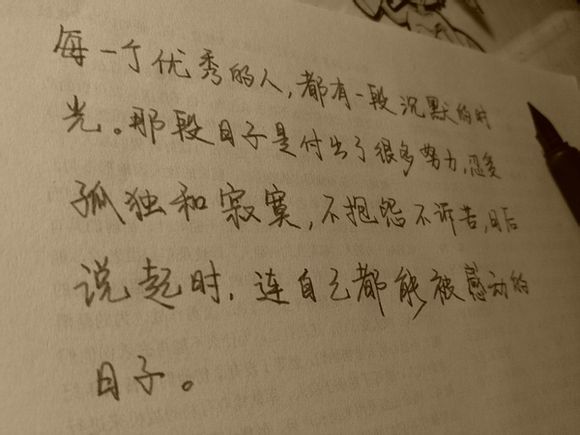 每一个优秀的人，都有一段沉默的时
光。那段日子是付出了很多努力，忍受
孤独和寂寞，不抱怨不诉苦，日后
说起时，连自己都能被感动的
日子。